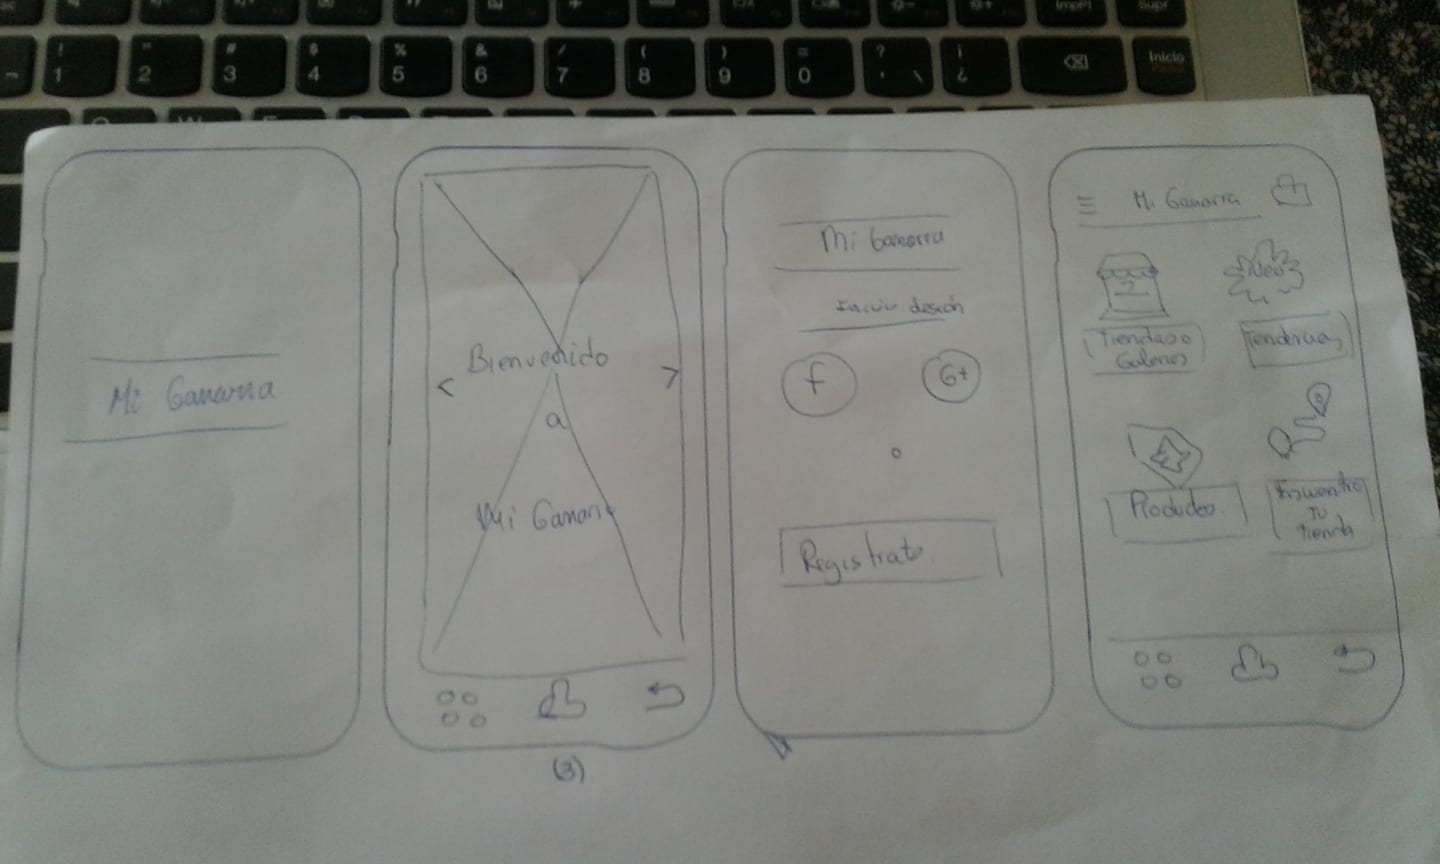 Impr Supr
! " # $ % & / ( ) = ? ¡
1 2 3 4 5 6 7 8 9 0 ' \ ¿ Inicio
Mi Gamarra
Bienvenido
< >
a
Mi Gamarra
(3)
Mi Gamarra
f G+
o
Registrate
Mi Gamarra
Tiendas o
Tendencias
Productos
Encuentra
Tu
tienda